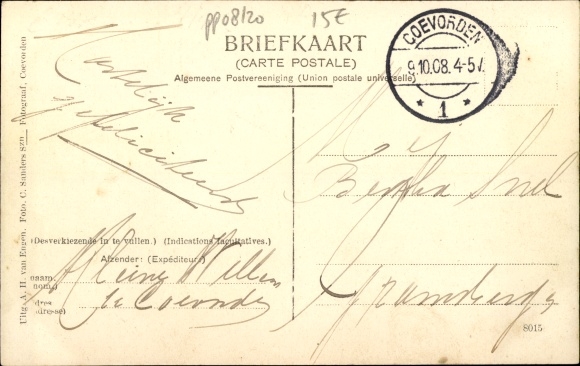 pp08/20 15E
BRIEFKAART
(CARTE POSTALE)
Algemeene Postvereeniging (Union postale universelle)
COEVORDEN
9.10.08. 4-5 V.
* 1 *
Hartelijk
gefeliciteerd
Uitg. A. H. van Engen. Foto. C. Sanders Szn. Fotograaf, Coevorden
Mej
Bertha Snel
Gramsbergen
(Desverkiezende in te vullen.) (Indications facultatives.)
Afzender: (Expéditeur)
Willem
te Coevorden
naam.
nom.)
adres
dresse)
8015